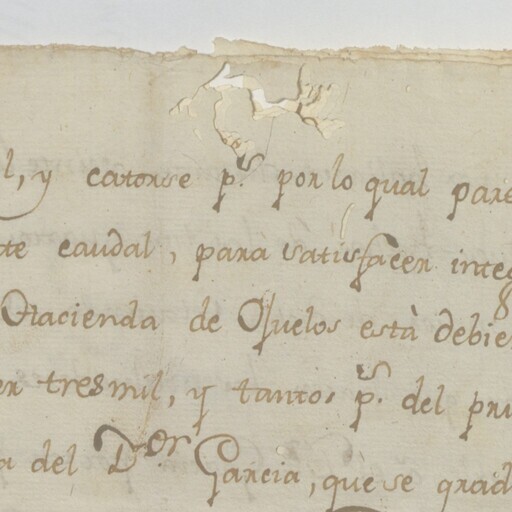 l, y catorse p.s por lo qual pare
te caudal, para satisfacer inte
Hacienda de Ojuelos està debie
en tresmil, y tantos p.s del pri
a del D.or Garcia, què se grad